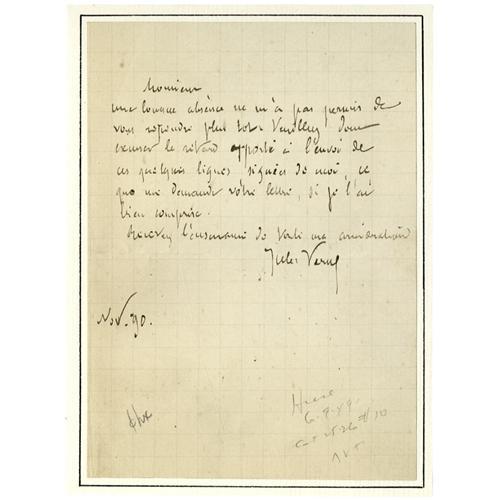 Monsieur
une longue absence ne m'a pas permis de
vous répondre plus tôt. Veuillez donc
excuser le retard apporté à l'envoi de
ces quelques lignes signées de moi, ce
que me demande votre lettre, si je l'ai
bien comprise.
Recevez l'assurance de toute ma considération
Jules Verne
Nov. 90.